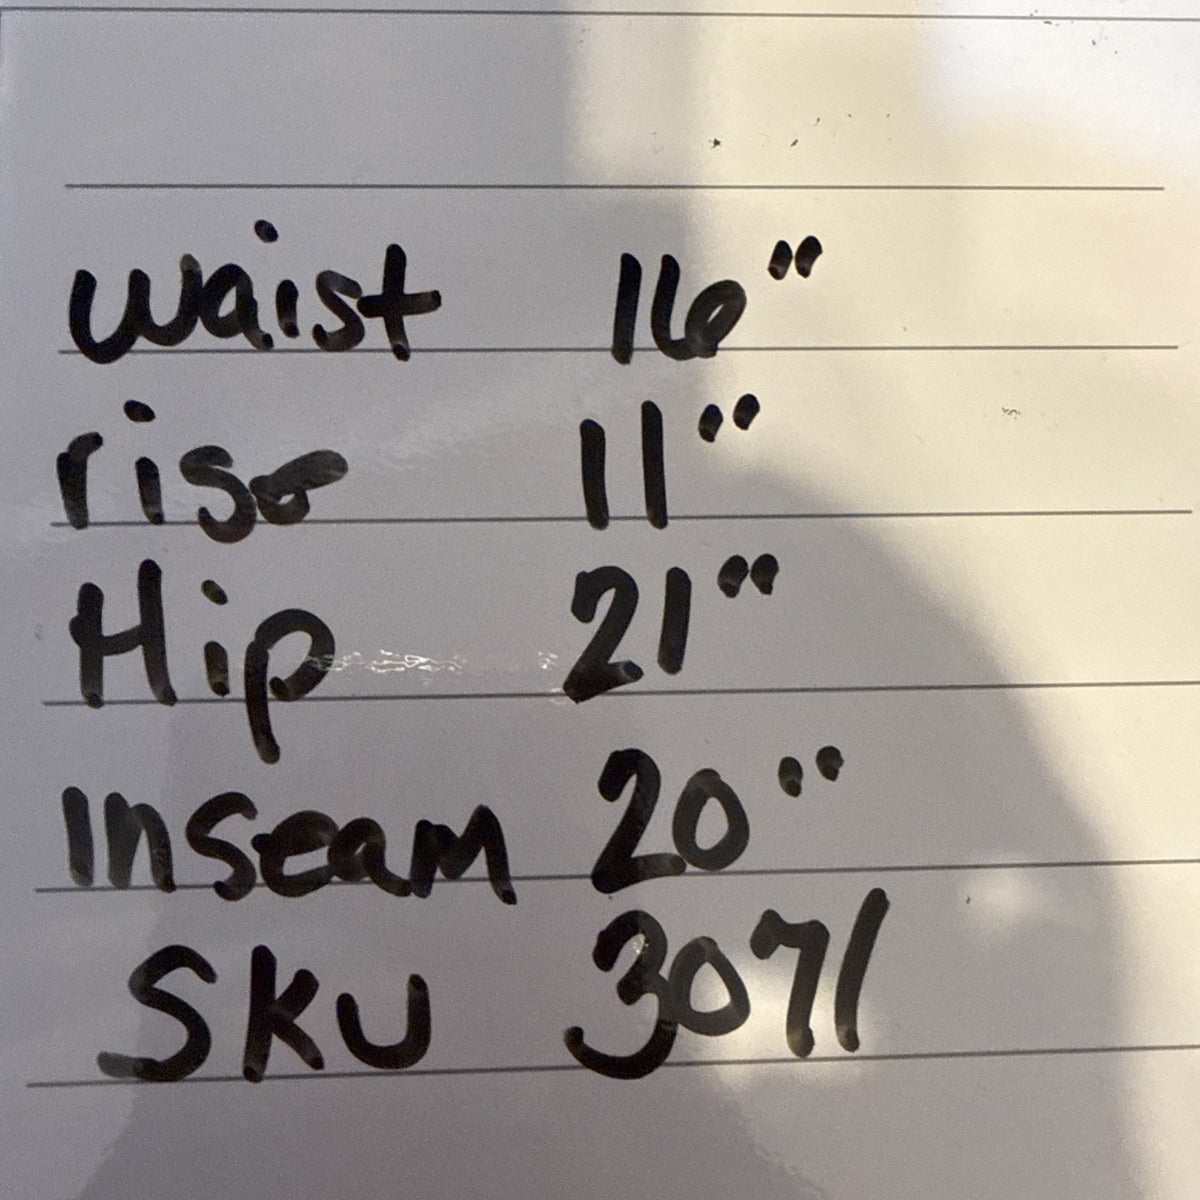 waist 16"
rise 11"
Hip 21"
Inseam 20"
SKU 3071